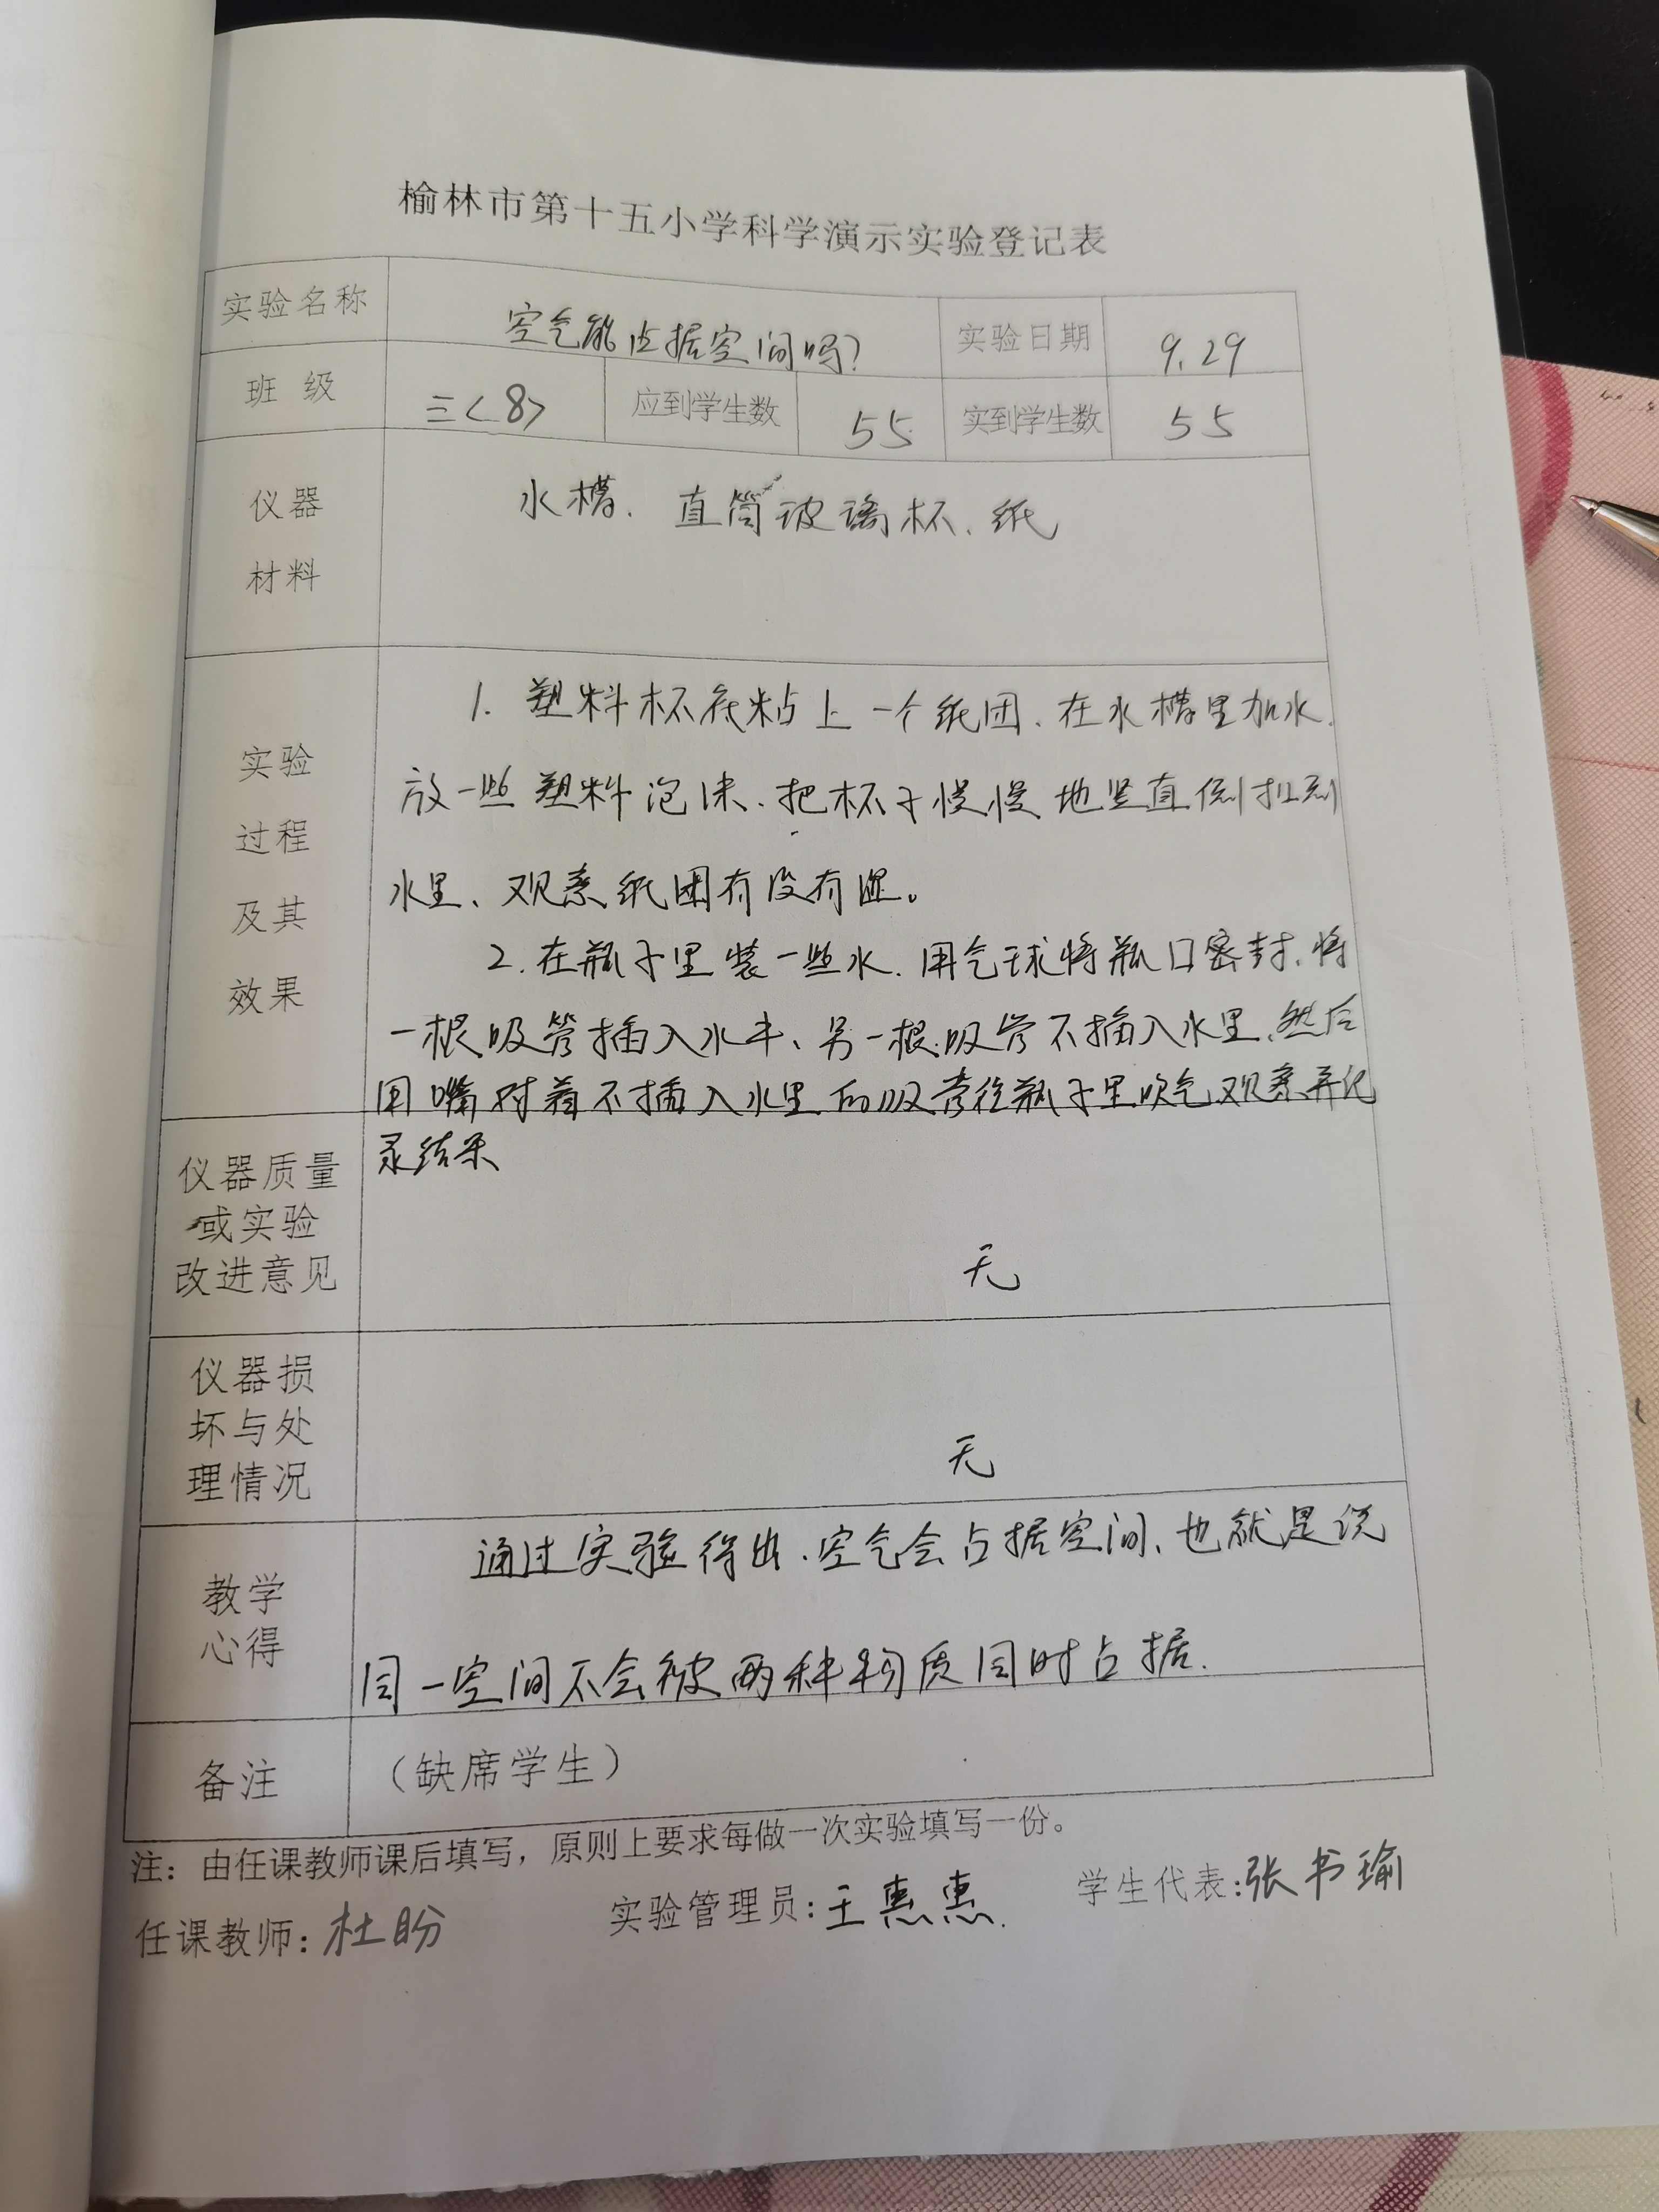 榆林市第十五小学科学演示实验登记表
实验名称 空气能占据空间吗? 实验日期 9.29
班 级 三<8> 应到学生数 55 实到学生数 55
仪器 水槽、直筒玻璃杯、纸
材料
1. 塑料杯底粘上一个纸团、在水槽里加水、
实验
放一些塑料泡沫、把杯子慢慢地竖直倒扣到
过程
水里、观察纸团有没有湿。
及其
2. 在瓶子里装一些水、用气球将瓶口密封、将
效果
一根吸管插入水中、另一根吸管不插入水里、然后
用嘴对着不插入水里的吸管往瓶子里吹气观察并记
录结果
仪器质量
或实验
改进意见 无
仪器损
坏与处
理情况 无
通过实验得出、空气会占据空间、也就是说
教学
心得
同一空间不会被两种物质同时占据.
备注 (缺席学生)
注:由任课教师课后填写,原则上要求每做一次实验填写一份。
任课教师:杜盼 实验管理员:王惠惠. 学生代表:张书瑜